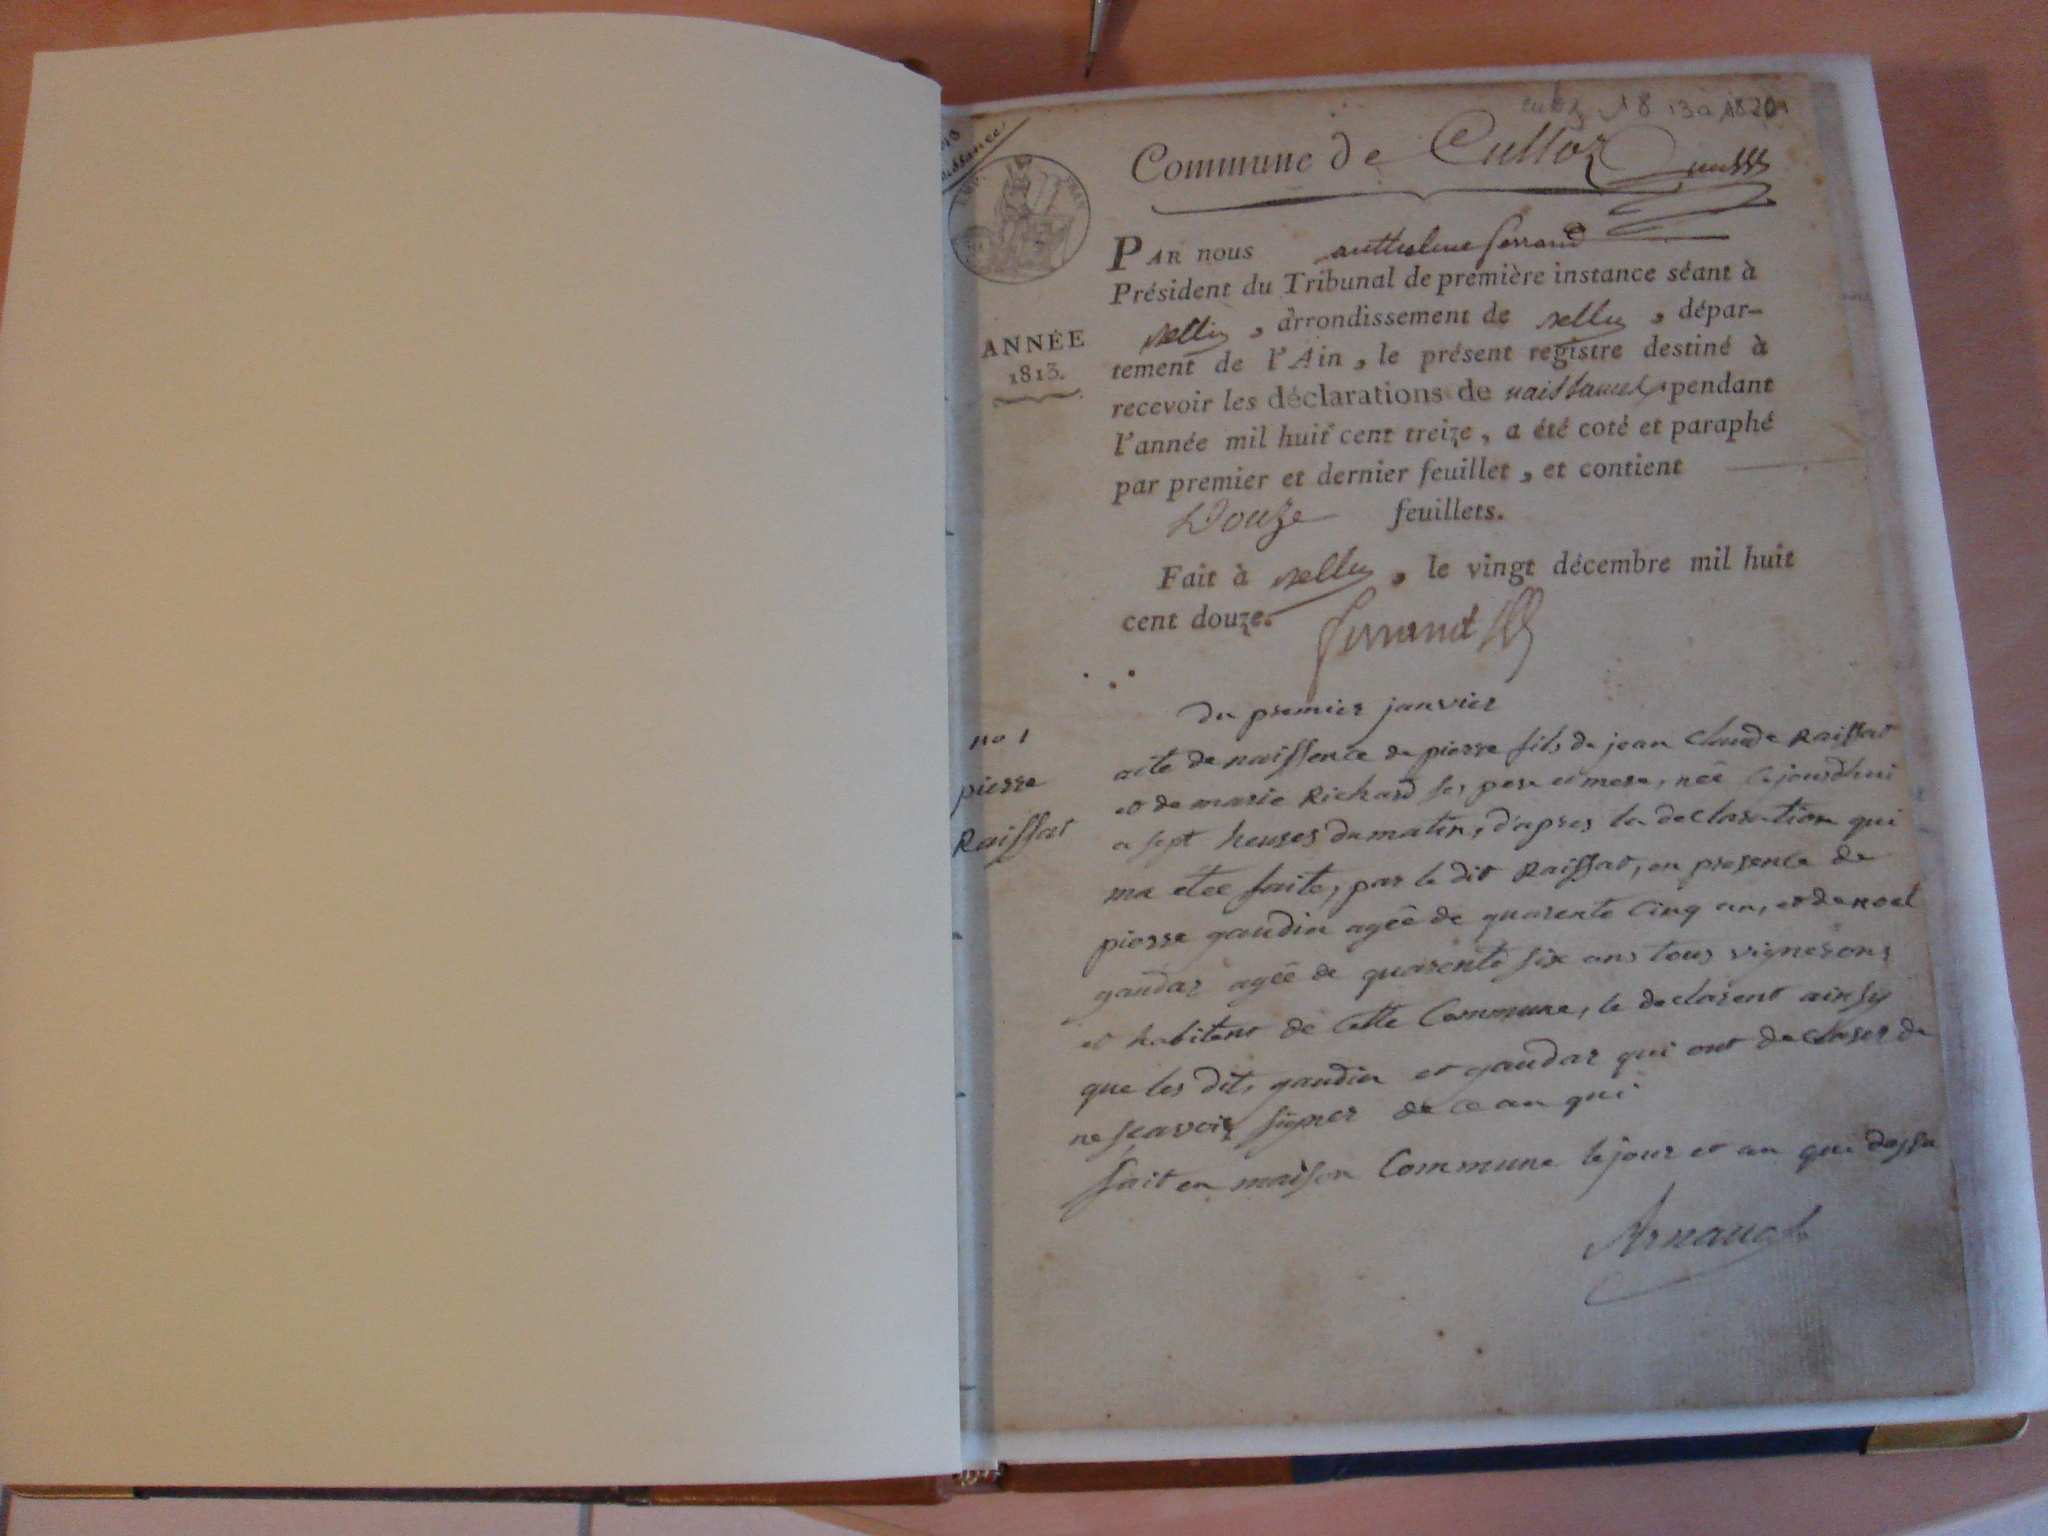 1813 à 1820
Commune de Culloz
PAR nous anthelme ferrand
Président du Tribunal de première instance séant à
Belley, arrondissement de Belley, dépar-
tement de l'Ain, le présent registre destiné à
recevoir les déclarations de naissances pendant
l'année mil huit cent treize, a été coté et paraphé
par premier et dernier feuillet, et contient
Douze feuillets.
Fait à Belley, le vingt décembre mil huit
cent douze.
ferrand
ANNÉE
1813.
du premier janvier
no 1
pierre
Raissat
acte de naissence de pierre fils de jean claude Raissat
et de marie Richard ses pere et mere, néé cejourdhui
a sept heures du matin, d'apres la declaration qui
ma etee faite, par le dit Raissat, en presence de
pierre gaudin agéé de quarente cinq an, et de noel
gaudar agéé de quarente six ans tous vignerons
et habitent de cette Commune, le declarent ainsy
que les dit, gaudin et gaudar qui ont declarer de
ne sçavoir signer de ce an qui
fait en maison Commune le jour et an que dessu
Arnaud